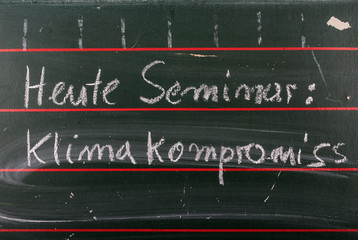 Heute Seminar:
Klimakompromiss